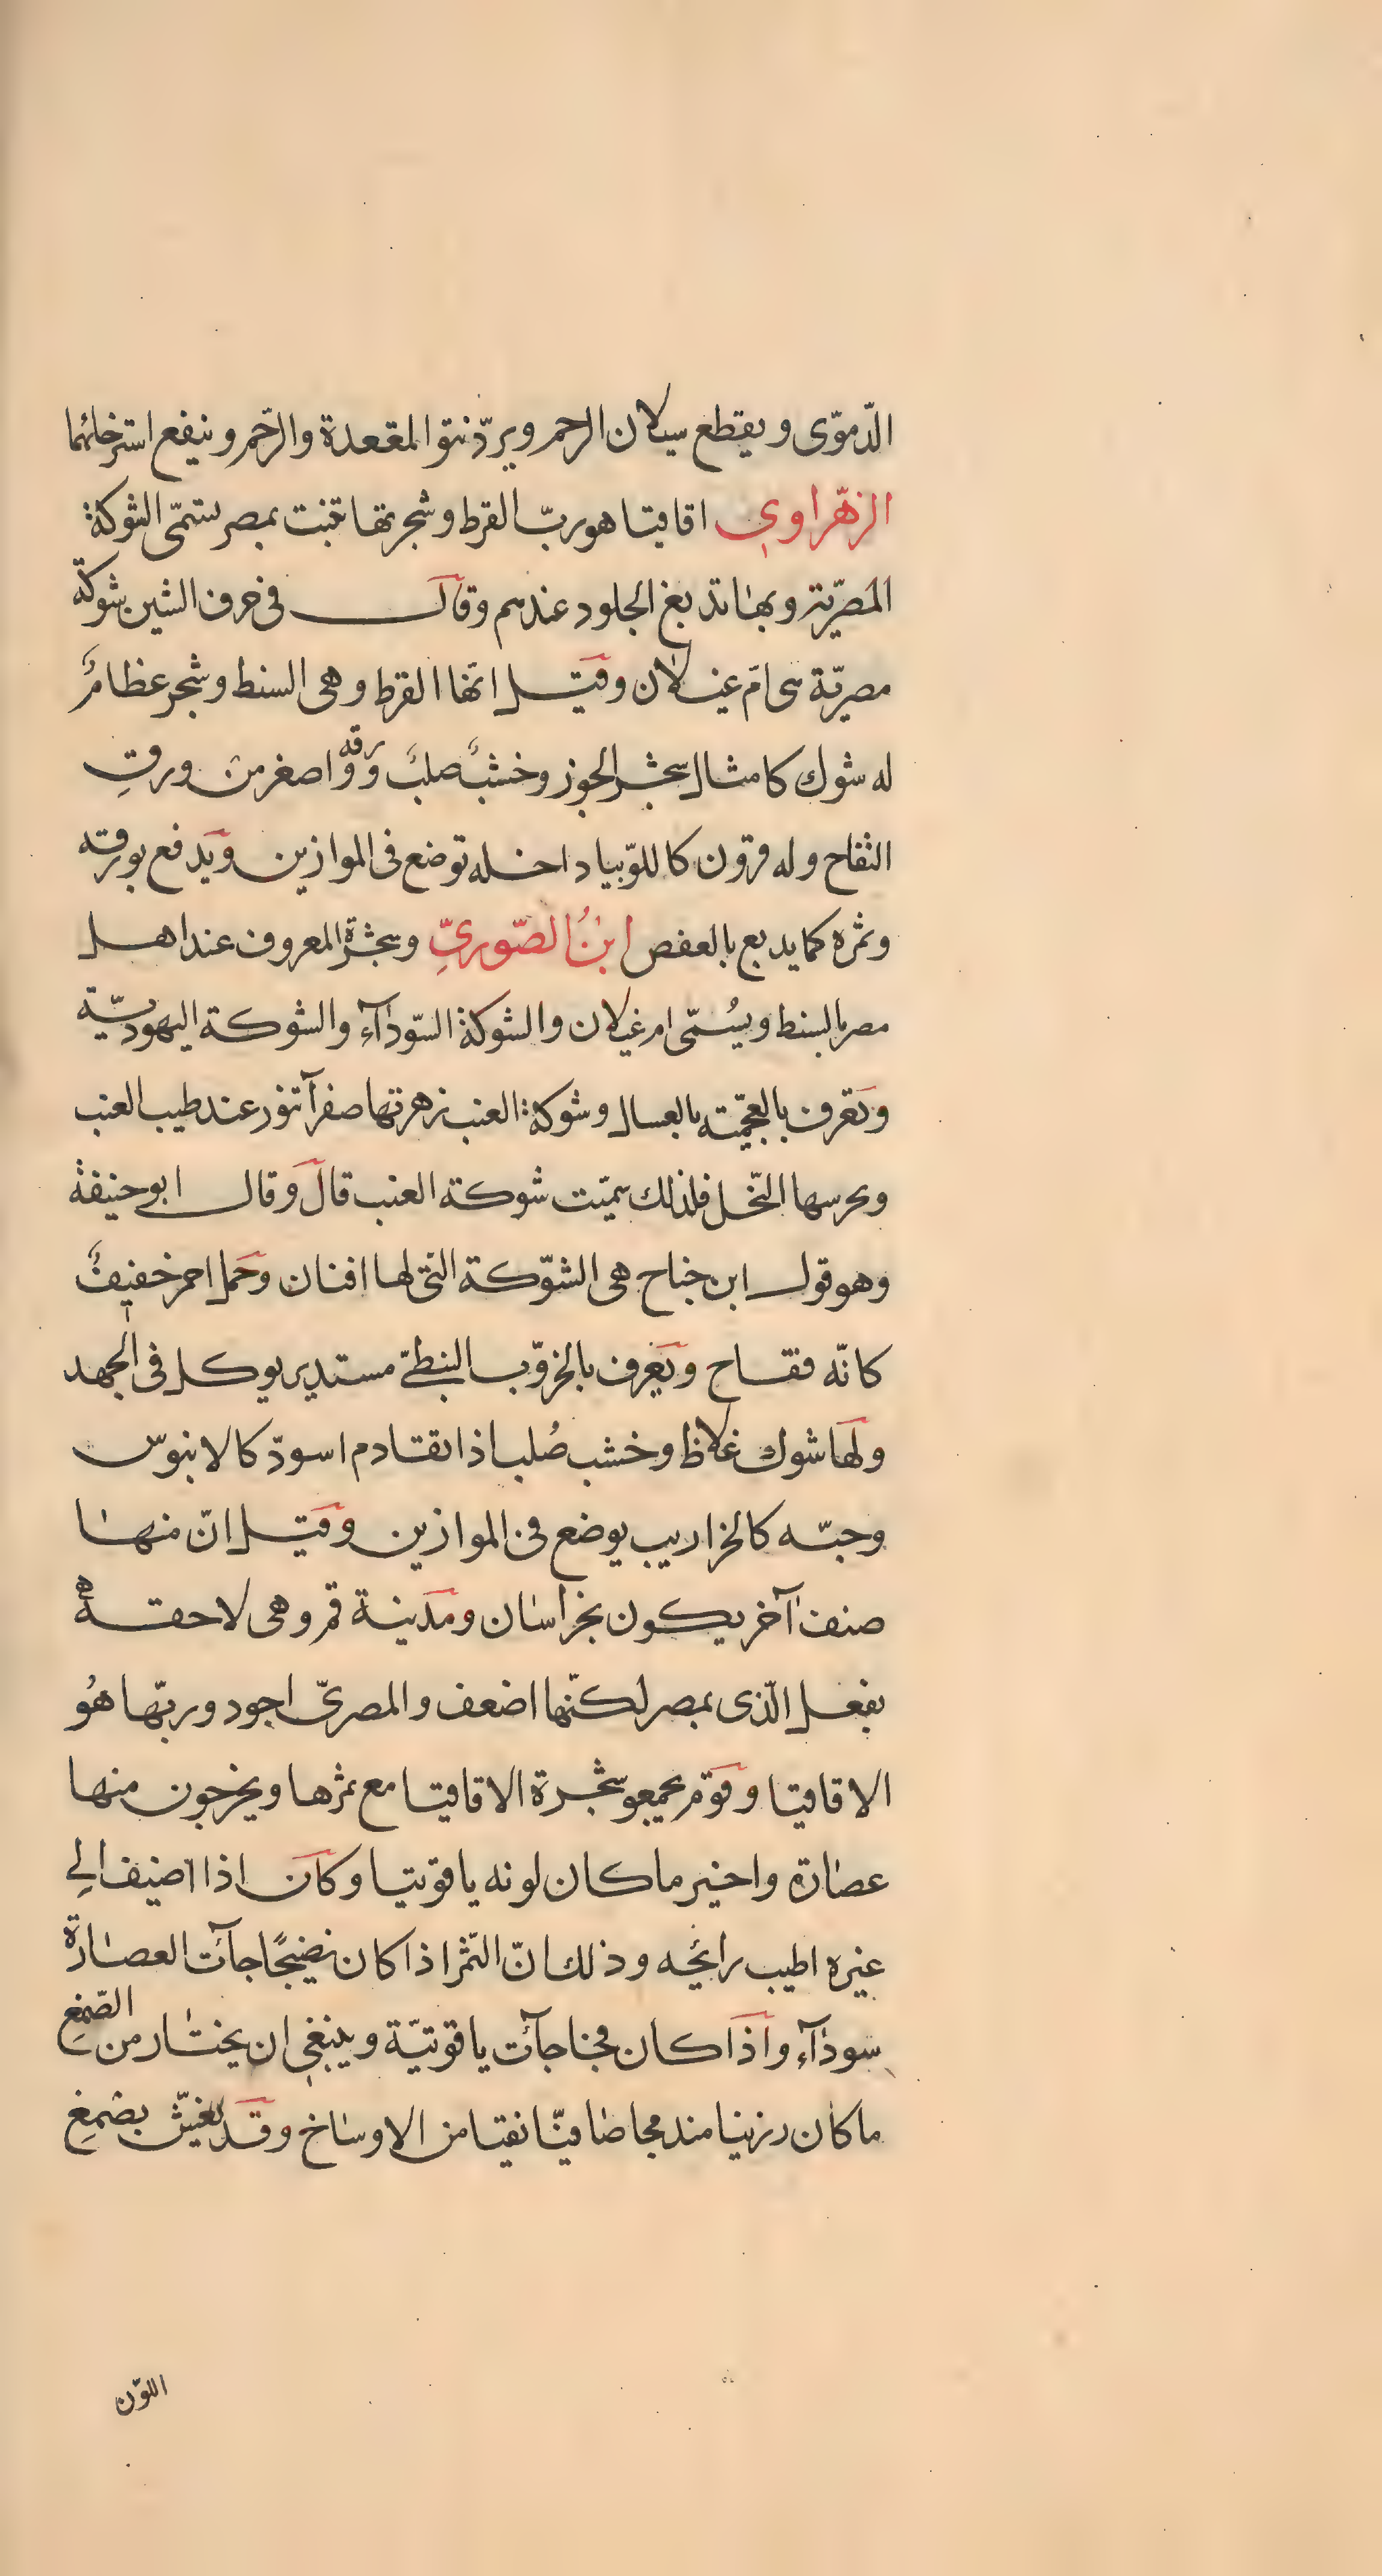 الدّموّى ويقطع سيلان الرحم ويردّ نتو المقعدة والرّحم وينفع استرخائهما
الزهّراوي اقاقيا هو ربّ القرط وشجرتها تنبت بمصر يستمّى الشوكة
المَصريّة وبها تدبغ الجلود عندهم وقال فى حرف الشين شوكة
مصريّة هى امّ غيلان وقيل انّها القرط وهى السنط وشجر عظامٌ
له شوك كامثال شجر الجوز وخشبٌ صلبٌ وورقه اصغر من ورقِ
التفاح وله قرون كاللوّبيا داخله توضع فى الموازين ويدفع بورقه
وثمره كما يدبع بالعفص ابنُ الصّوريِّ وشجرة المعروف عند اهل
مصر بالسنط ويسُمّى ام غيلان والشوكة السّودآء والشوكة اليهوديّة
وتعرف بالعجميّة بالعسال وشوكة العنب زهرتها صفرآ تنور عند طيب العنب
ويحرسها النّحل فلذلك سميّت شوكة العنب قال وقال ابو حنيفة
وهو قول ابن جناح هى الشوّكة التى لها افنان وحمل احمر خفيفٌ
كانّه فقاح ويعرف بالخروّب النبطىّ مستدير يوكل فى الجهد
ولها شوك غلاظ وخشب صُلب اذا تقادم اسودّ كالابنوس
وحبّه كالخراريب يوضع فى الموازين وقيل انّ منها
صنف آخر يكون بخراسان ومدينة قم وهى لاحقة
بفعل الّذى بمصر لكنّها اضعف والمصرىّ اجود وربّها هُو
الاقاقيا وقوم يجمعو شجرة الاقاقيا مع ثمرها ويخرجون منها
عصارة واخير ما كان لونه ياقوتيا وكان اذا اضيف الى
غيره اطيب رايحه وذلك انّ الثمر اذا كان نضيجًا جآئت العصارة
سودآء واذا كان فجا جآئت ياقوتيّة وينبغى ان يختار من الصّمغِ
ما كان رزينا مندمجا صافيّا نقيا من الاوساخ وقد يغشّ بصمغِ
اللوّن